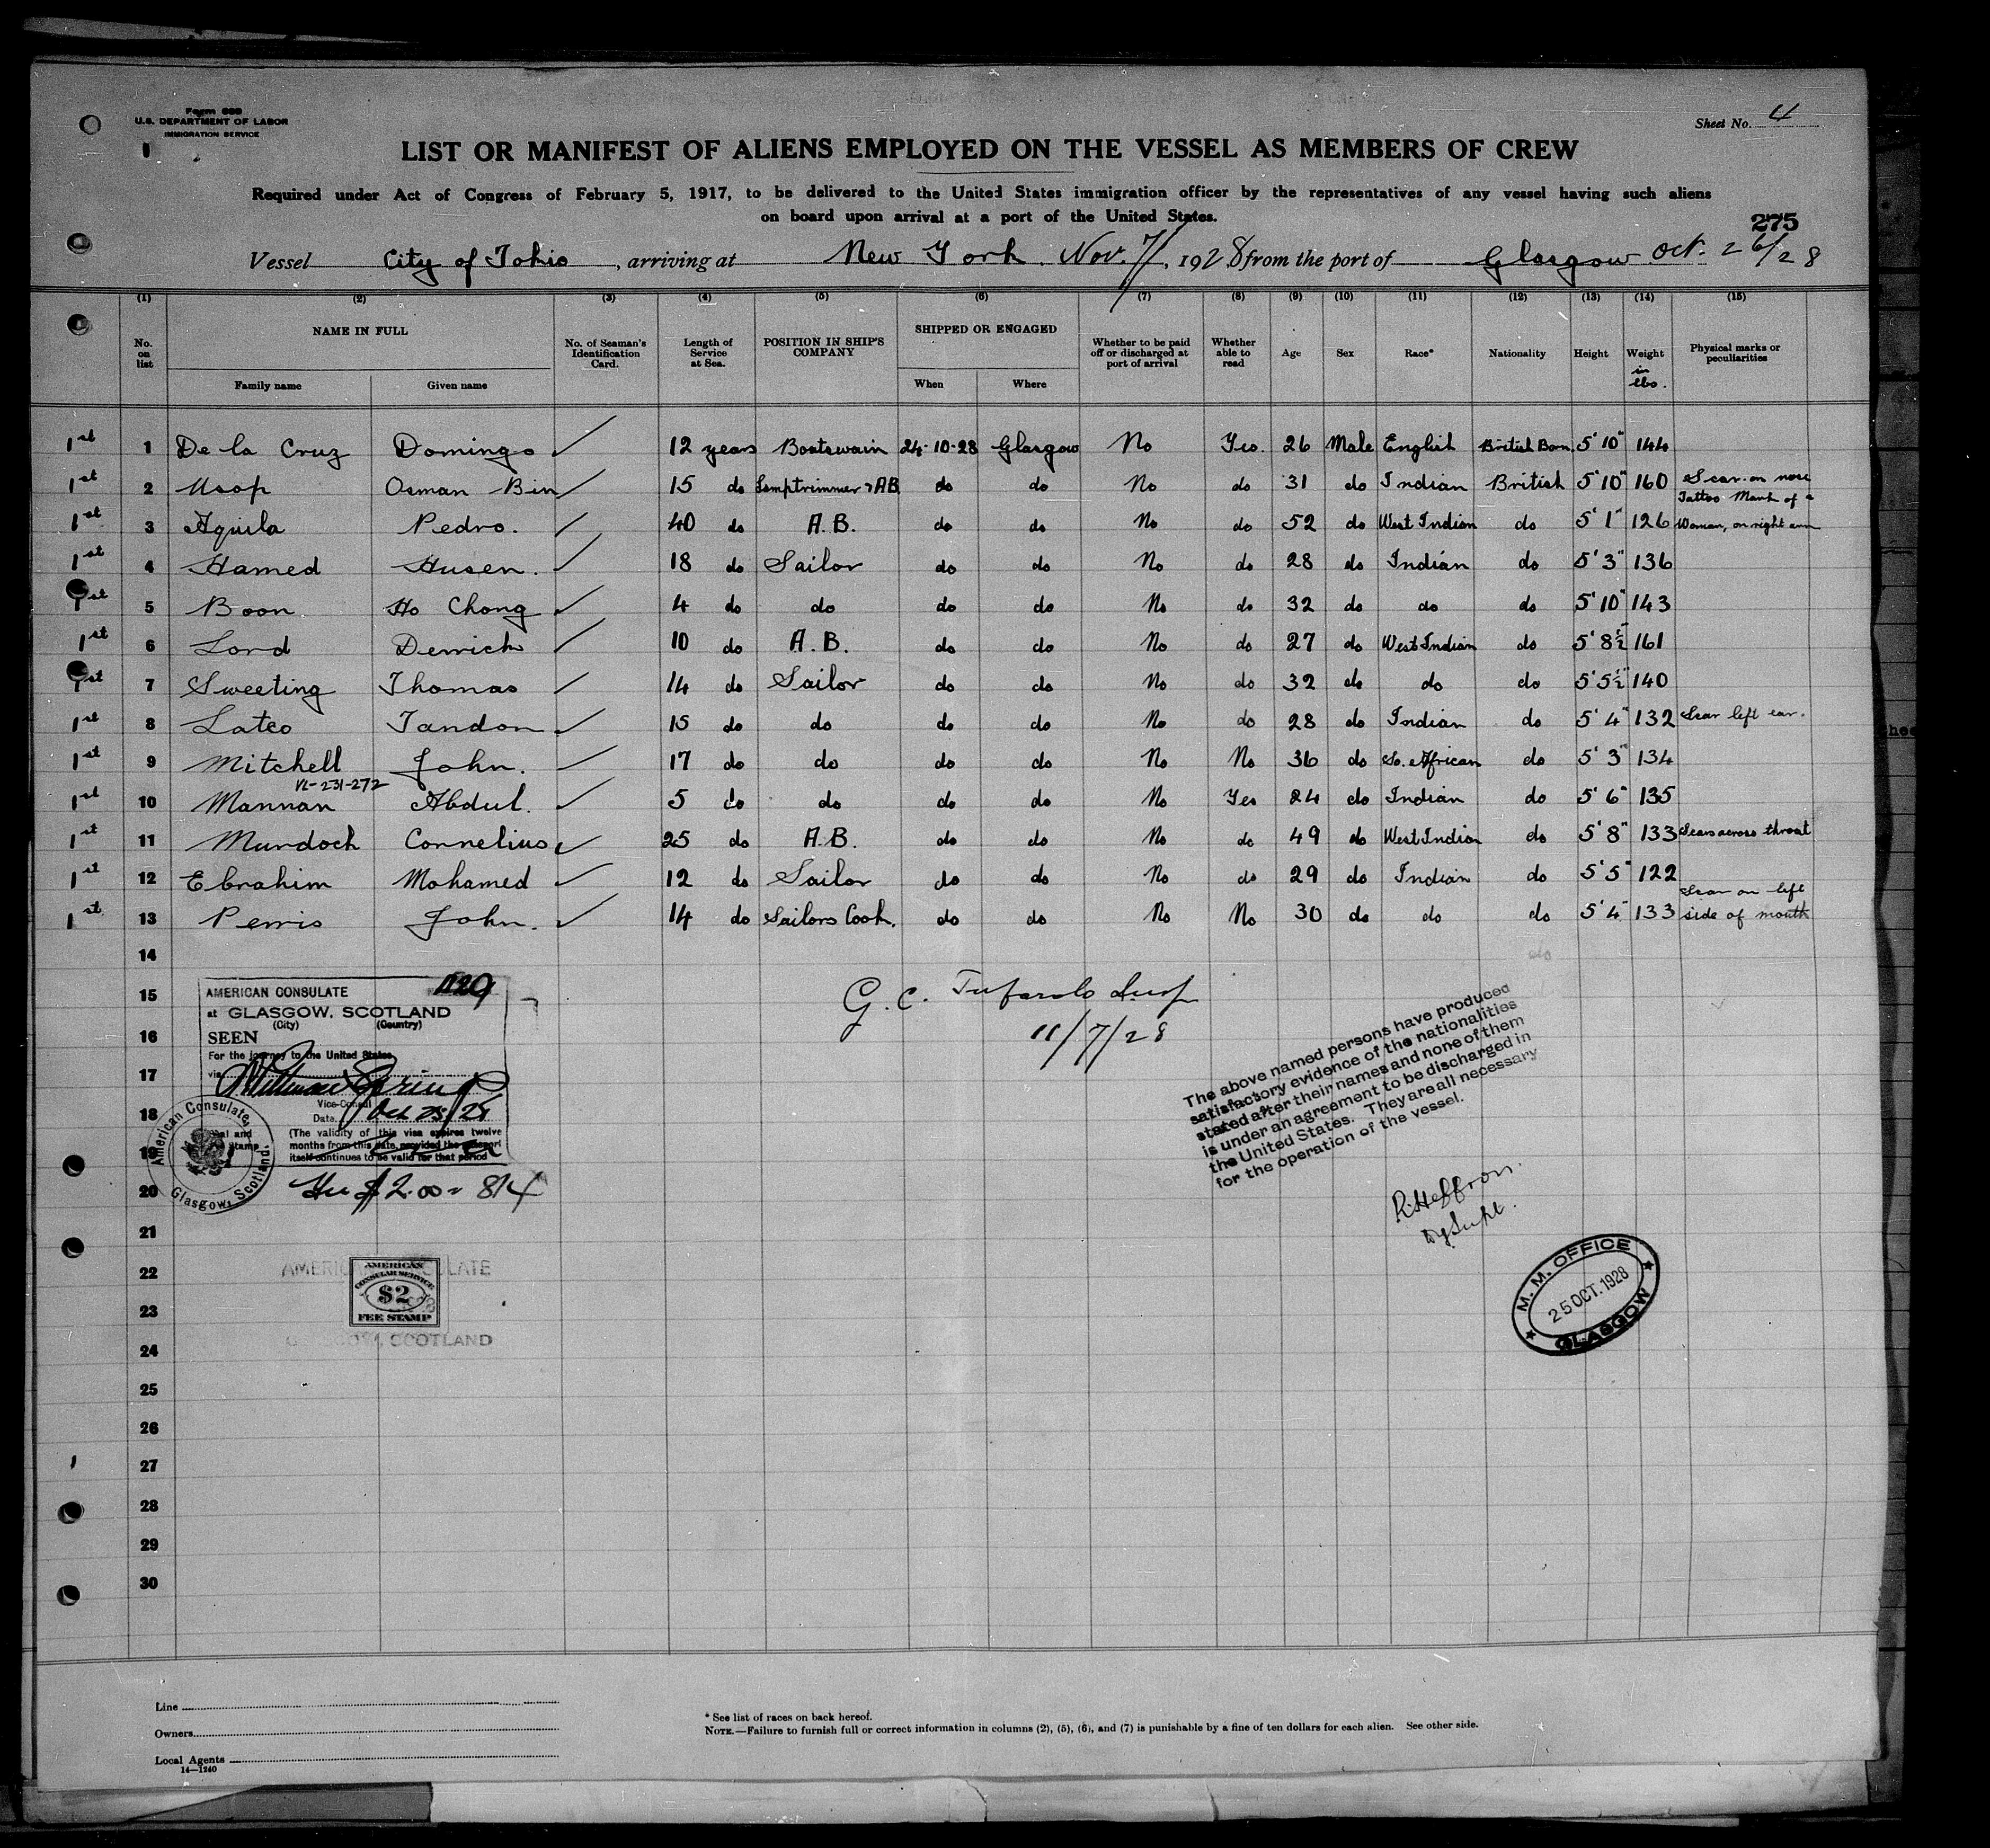 Form 689
U.S. DEPARTMENT OF LABOR
IMMIGRATION SERVICE
Sheet No. 4
LIST OR MANIFEST OF ALIENS EMPLOYED ON THE VESSEL AS MEMBERS OF CREW
Required under Act of Congress of February 5, 1917, to be delivered to the United States immigration officer by the representatives of any vessel having such aliens
on board upon arrival at a port of the United States.
275
Vessel City of Tokio, arriving at New York Nov. 7/, 1928 from the port of Glasgow Oct. 26/28
(1) (2) (3) (4) (5) (6) (7) (8) (9) (10) (11) (12) (13) (14) (15)
No. on list NAME IN FULL Family name Given name No. of Seaman's Identification Card. Length of Service at Sea. POSITION IN SHIP'S COMPANY SHIPPED OR ENGAGED When Where Whether to be paid off or discharged at port of arrival Whether able to read Age Sex Race* Nationality Height Weight in lbs. Physical marks or peculiarities
1st 1 De la Cruz Domingo ✓ 12 years Boatswain 24-10-28 Glasgow No Yes. 26 Male English British Born 5'10" 144
1st 2 Usop Osman Bin ✓ 15 do Lamptrimmer & AB do do No do 31 do Indian British 5'10" 160 Scar on nose
1st 3 Aquila Pedro. ✓ 40 do A.B. do do No do 52 do West Indian do 5'1" 126 Tattoo Mark of a Woman, on right arm
1st 4 Hamed Husen. ✓ 18 do Sailor do do No do 28 do Indian do 5'3" 136
1st 5 Boon Ho Chong ✓ 4 do do do do No do 32 do do do 5'10" 143
1st 6 Lord Derrick ✓ 10 do A.B. do do No do 27 do West Indian do 5'8½" 161
1st 7 Sweeting Thomas ✓ 14 do Sailor do do No do 32 do do do 5'5½" 140
1st 8 Latco Tandon ✓ 15 do do do do No do 28 do Indian do 5'4" 132 Scar left ear.
1st 9 Mitchell John. ✓ 17 do do do do No No 36 do So. African do 5'3" 134
VL-231-272
1st 10 Mannan Abdul. ✓ 5 do do do do No Yes 24 do Indian do 5'6" 135
1st 11 Murdoch Cornelius ✓ 25 do A.B. do do No do 49 do West Indian do 5'8" 133 Scars across throat
1st 12 Ebrahim Mohamed ✓ 12 do Sailor do do No do 29 do Indian do 5'5" 122
1st 13 Perris John. ✓ 14 do Sailors Cook. do do No No 30 do do do 5'4" 133 Scar on left side of mouth
14 do
15
16
17
18
19
20
21
22
23
24
25
26
27
28
29
30
1129
AMERICAN CONSULATE
at GLASGOW, SCOTLAND
(City) (Country)
SEEN
For the journey to the United States
via
Vice-Consul
Date. Oct 25/28
(The validity of this visa expires twelve
months from this date, provided the passport
itself continues to be valid for that period
Seal and Stamp
American Consulate,
Glasgow, Scotland.
Fee $2.00 = 8/4
AMERICAN CONSULATE
AMERICAN
CONSULAR SERVICE
$2
FEE STAMP
SCOTLAND
G. C. Tufarolo Insp
11/7/28
The above named persons have produced
satisfactory evidence of the nationalities
stated after their names and none of them
is under an agreement to be discharged in
the United States. They are all necessary
for the operation of the vessel.
R. Heffron.
Dy Supt.
M. M. OFFICE
25 OCT. 1928
GLASGOW
Line
Owners
Local Agents
14—1240
* See list of races on back hereof.
NOTE.—Failure to furnish full or correct information in columns (2), (5), (6), and (7) is punishable by a fine of ten dollars for each alien. See other side.